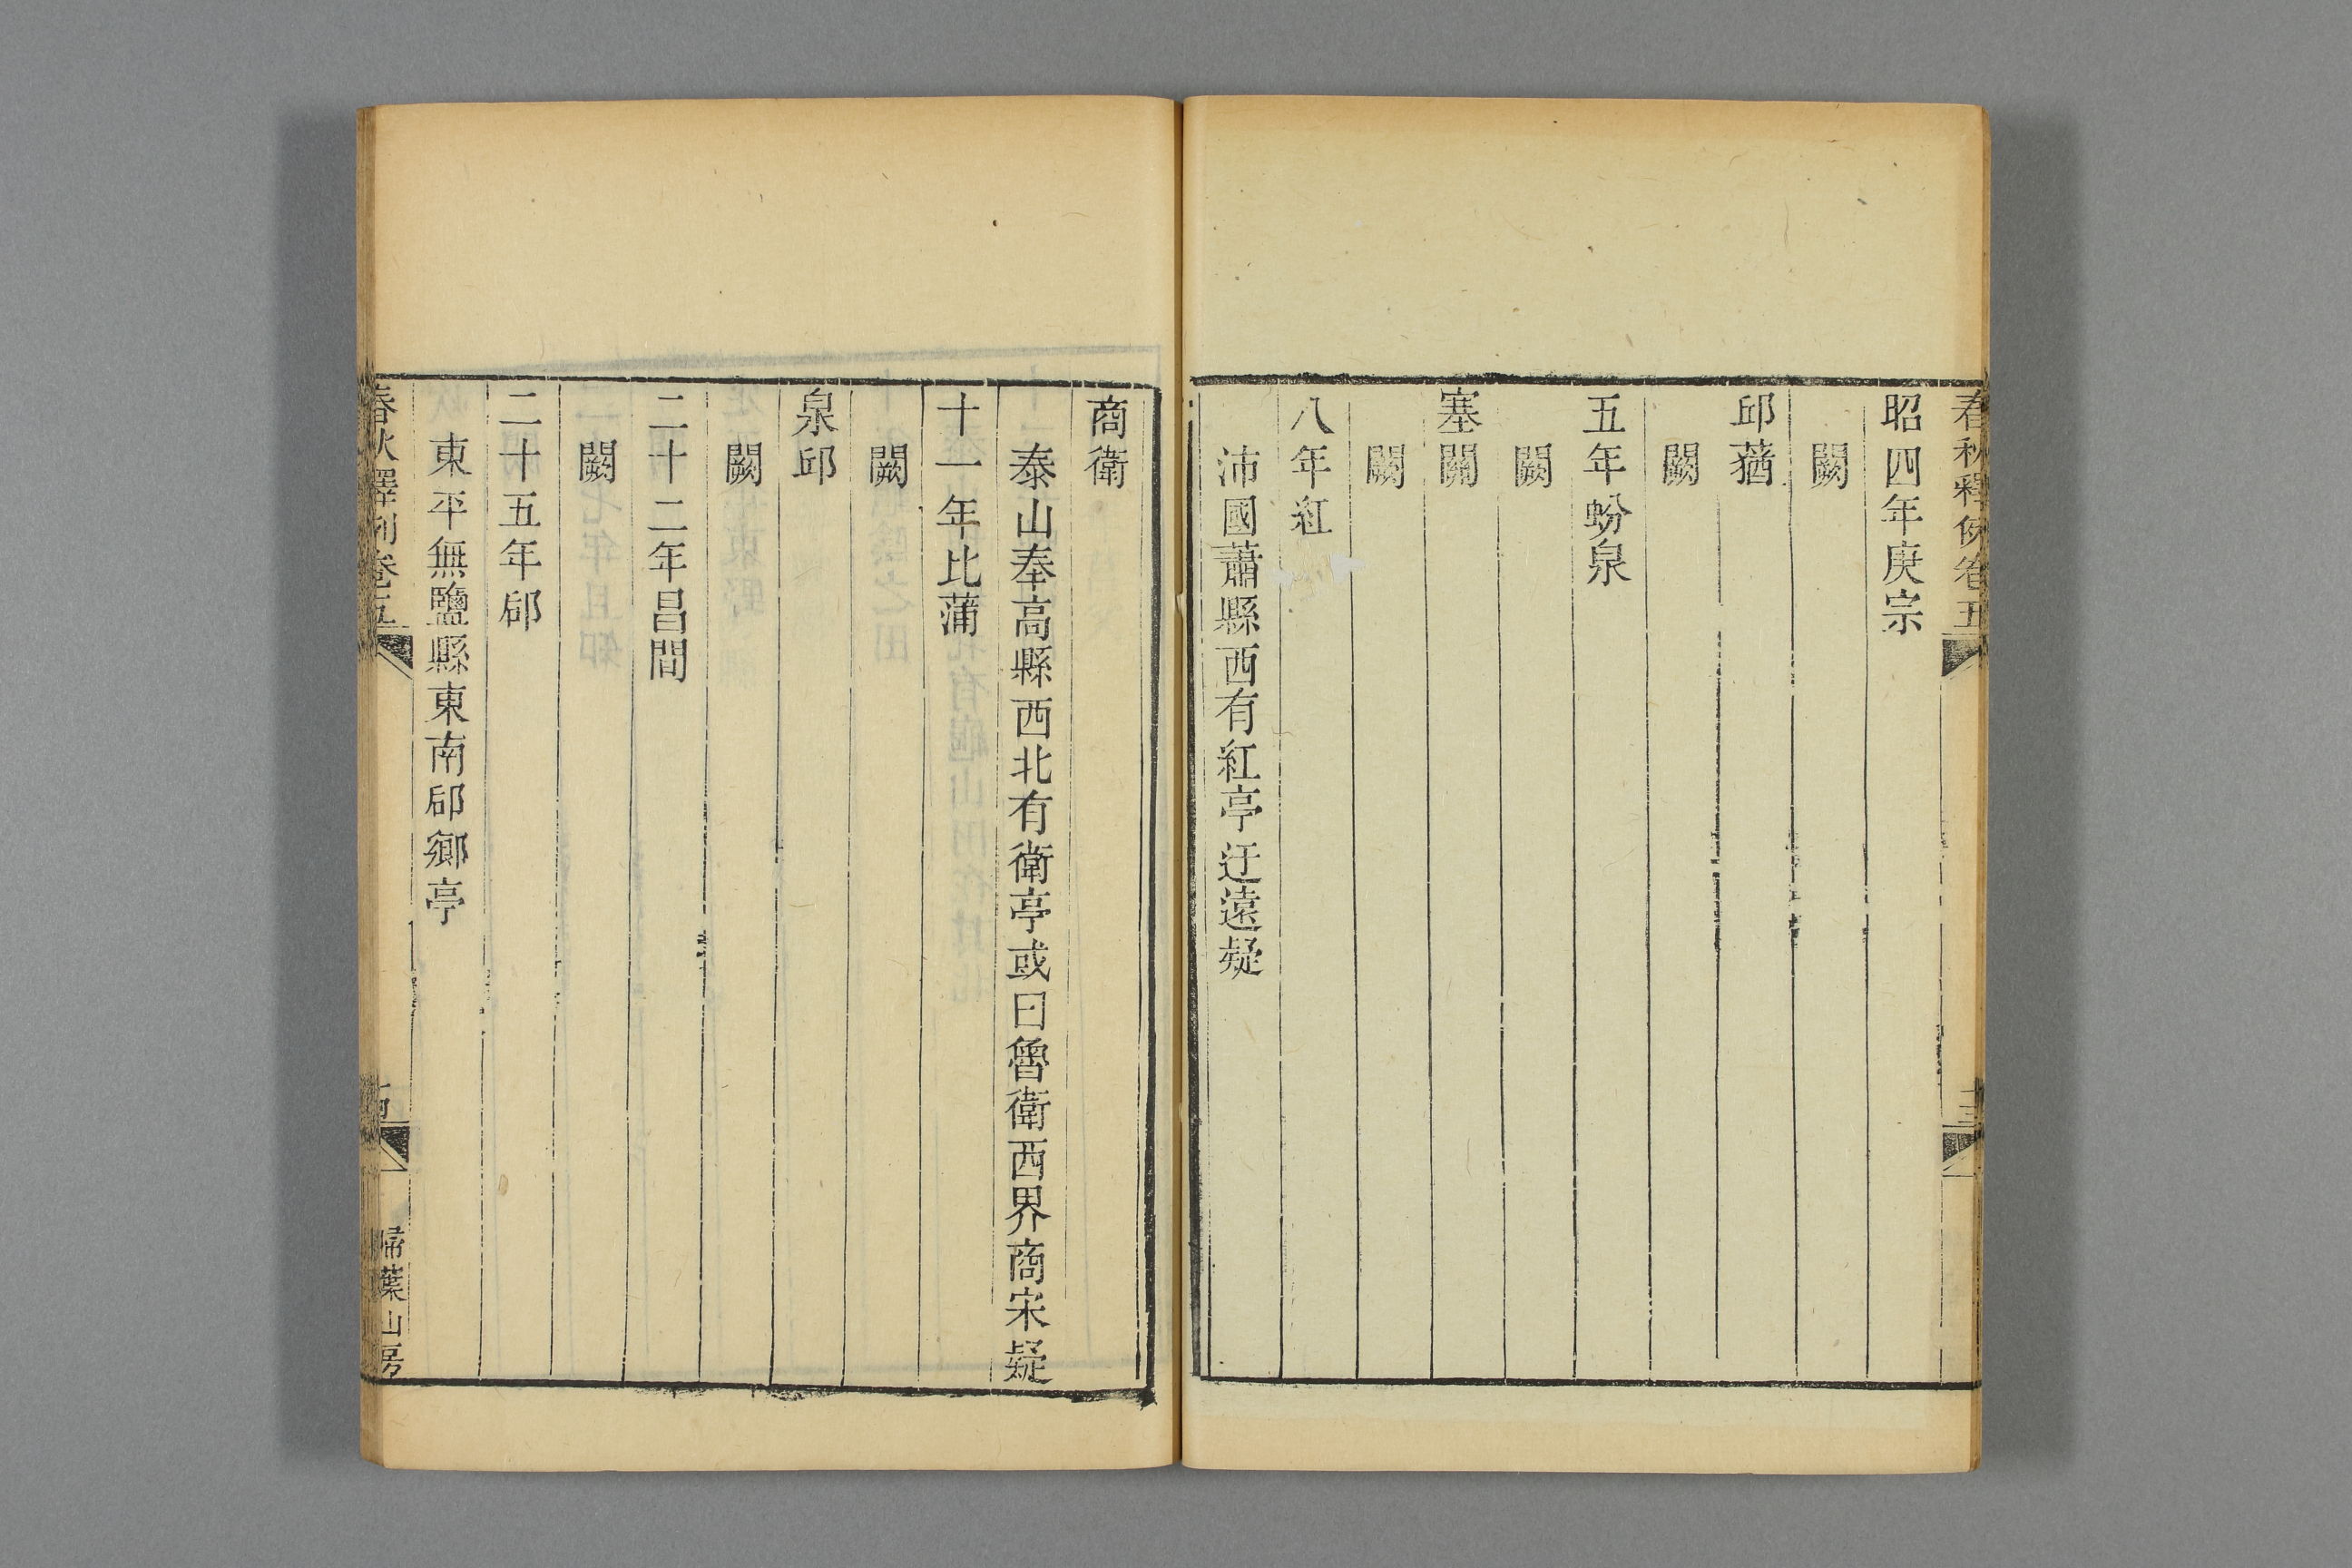 春秋釋例卷五
十三
昭四年庚宗
闕
邱蕕
闕
五年蚡泉
闕
塞關
闕
八年紅
沛國蕭縣西有紅亭迂遠疑
商衛
泰山奉高縣西北有衛亭或曰魯衛西界商宋疑
十一年比蒲
闕
泉邱
闕
二十二年昌間
闕
二十五年郈
東平無鹽縣東南郈鄉亭
春秋釋例卷五
掃葉山房